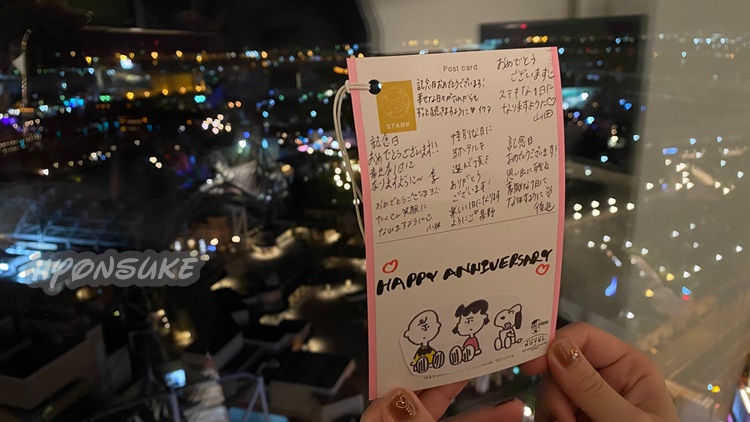 Post card
STAMP
おめでとう
ございます
ステキな1日に
なりますように♡
山田
記念日おめでとうございます!
幸せな日々がこれからも
ずっと続きますように♥
記念日
おめでとうございます!!
1日に
なりますように〜
おめでとうございます!
たくさん笑顔に
なりますように
小林
特別な日に
当ホテルを
選んで頂き
ありがとう
ございます!
楽しい1日になります
ように
記念日
おめでとうございます!
思い出に残る
素敵な1日に
なりますように
HAPPY ANNIVERSARY
HOTEL
#PONSUKE